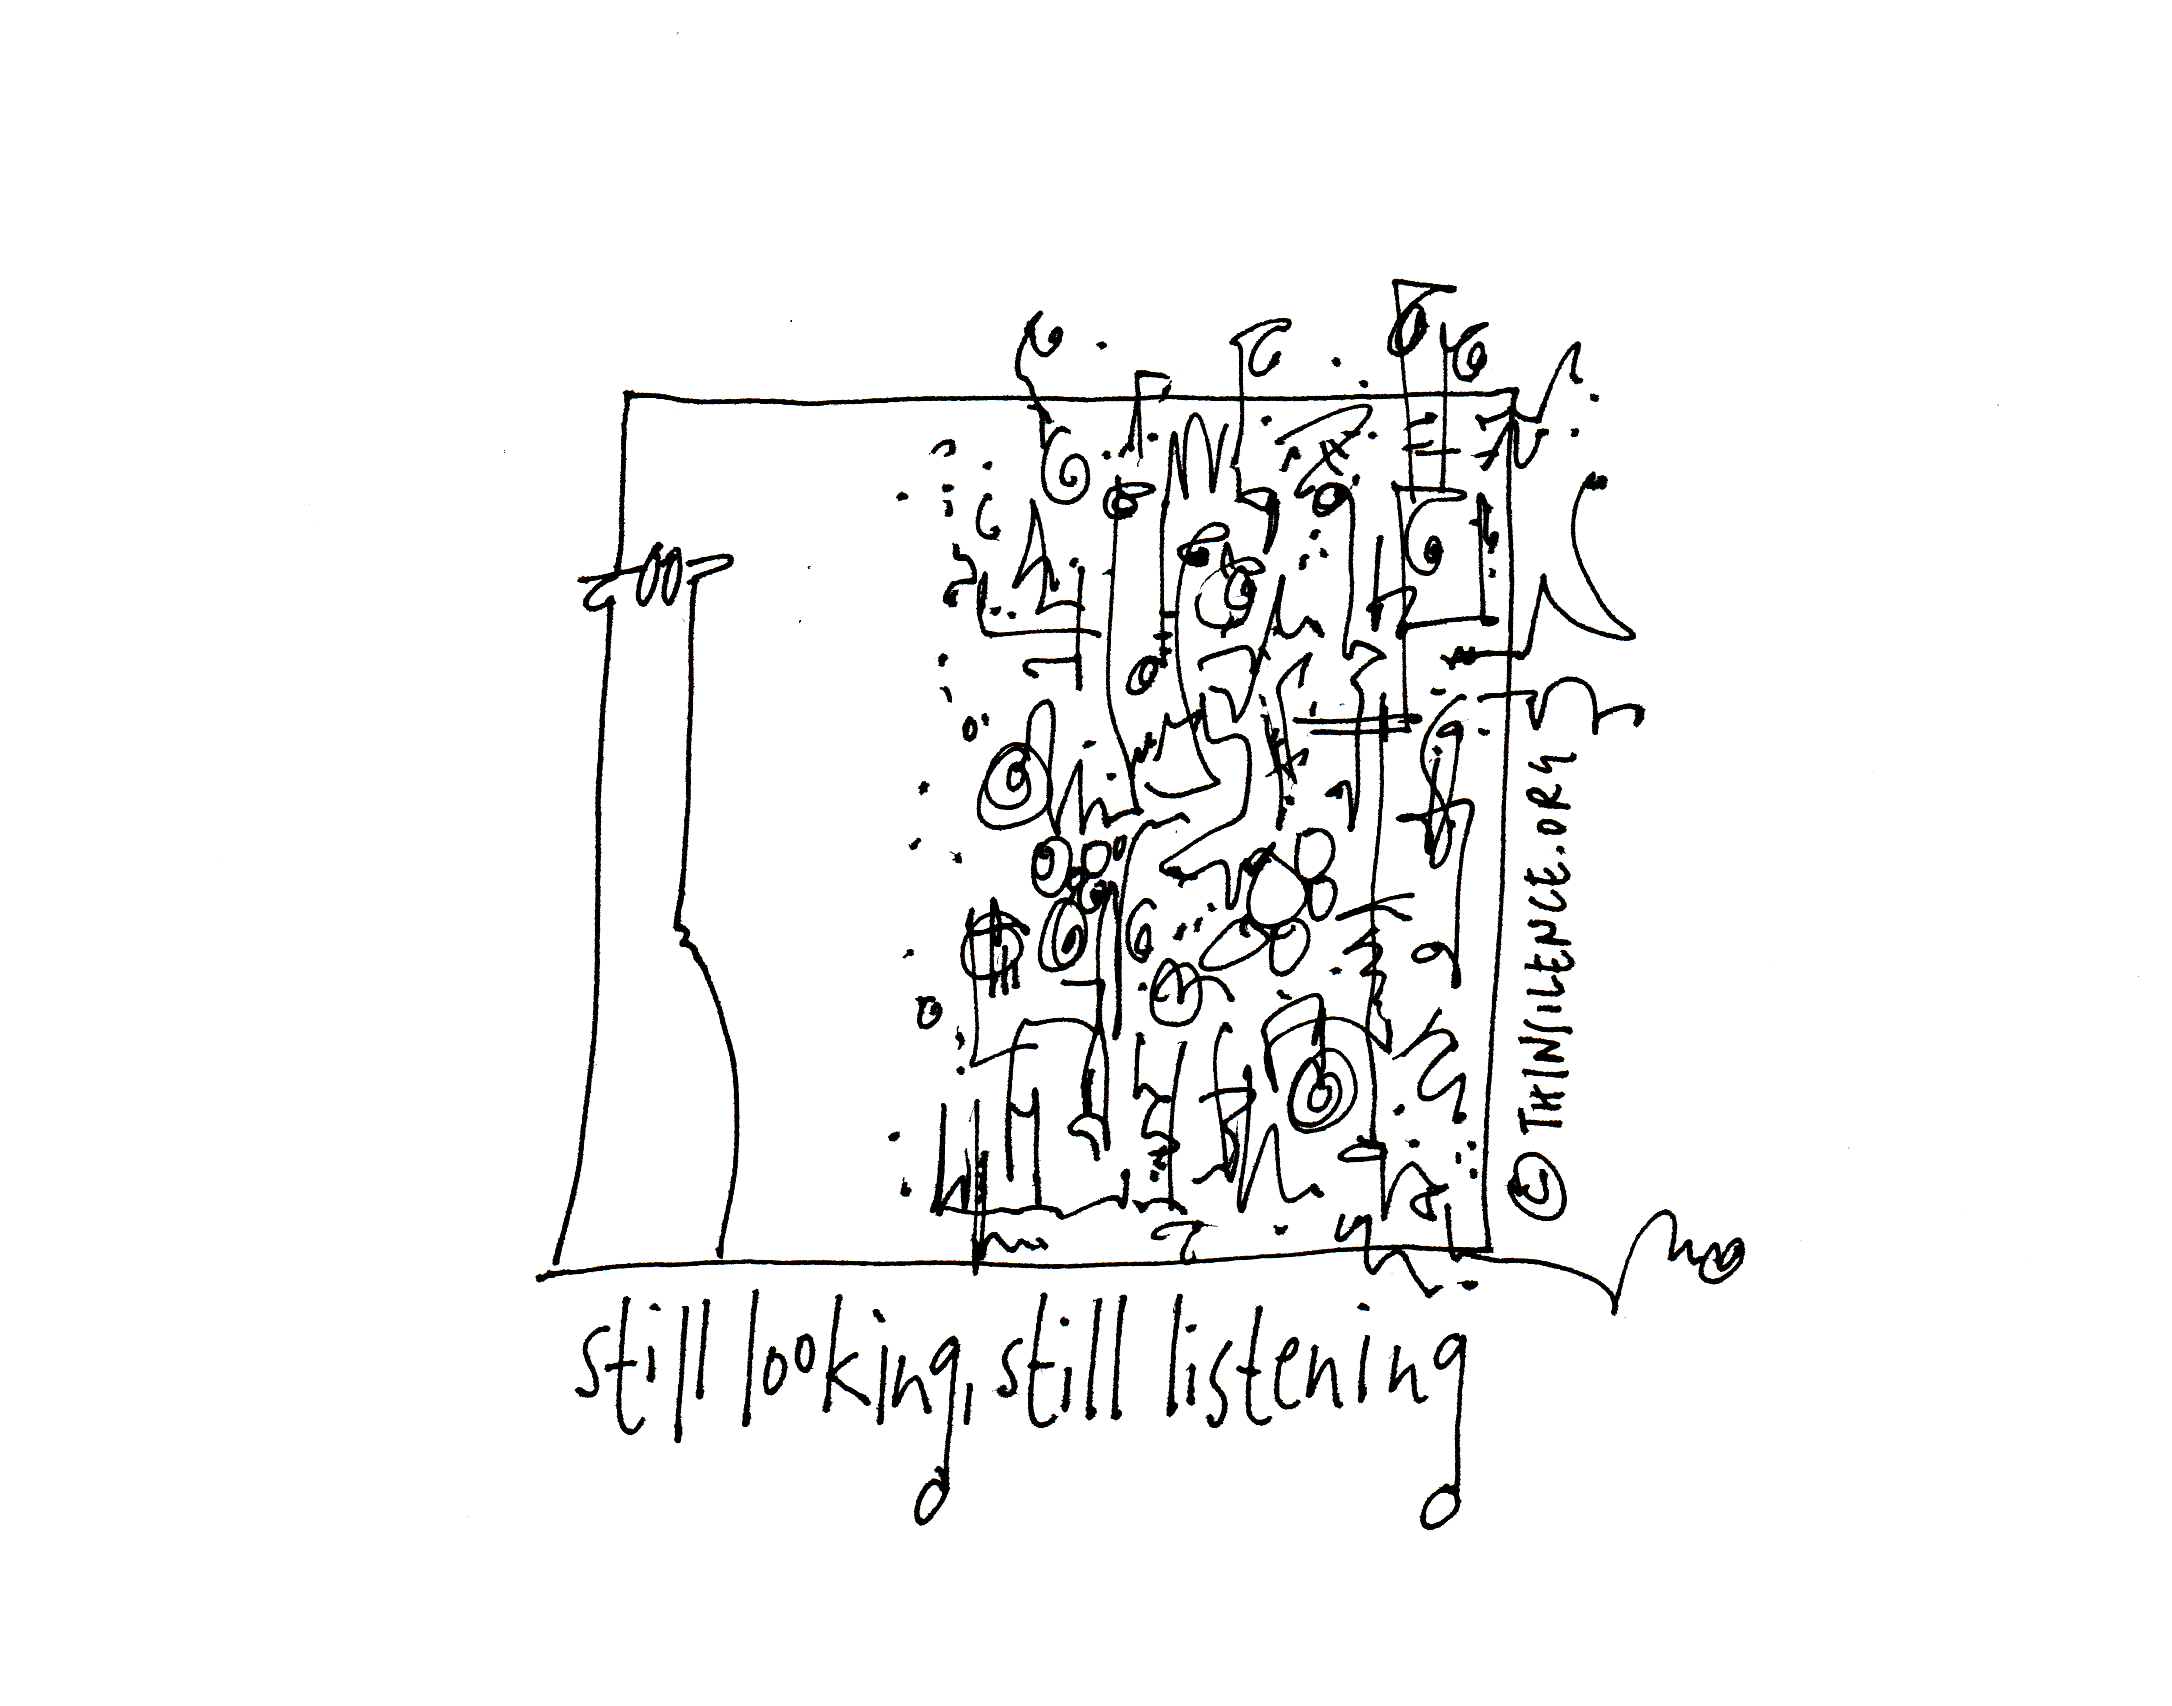 still looking, still listening
© THINSILENCE.ORG